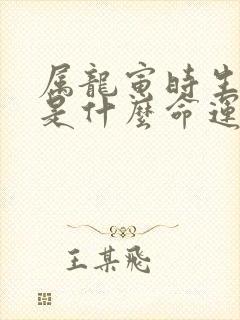 属龍寅時生
是什麼命運
王某飛